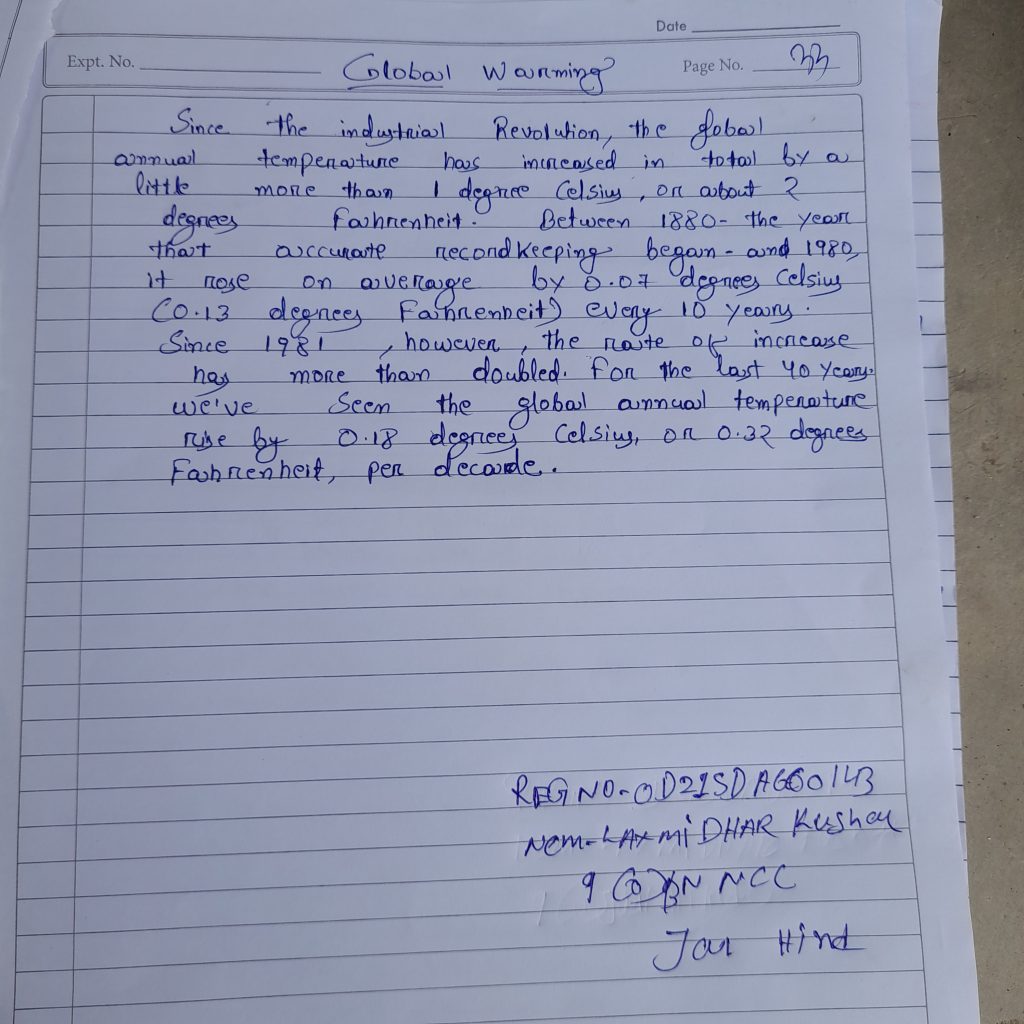 Date
Expt. No.
Global Warming
Page No. 33
Since the industrial Revolution, the global
annual temperature has increased in total by a
little more than 1 degree Celsius, or about 2
degrees Fahrenheit. Between 1880- the year
that accurate recordkeeping began - and 1980,
it rose on average by 0.07 degrees Celsius
(0.13 degrees Fahrenheit) every 10 years.
Since 1981, however, the rate of increase
has more than doubled. For the last 40 years.
we've seen the global annual temperature
rise by 0.18 degrees Celsius, or 0.32 degrees
Fahrenheit, per decade.
REG NO-OD21SDA660143
Nem-LAXMi DHAR Kushal
9 (O) BN NCC
Jai Hind